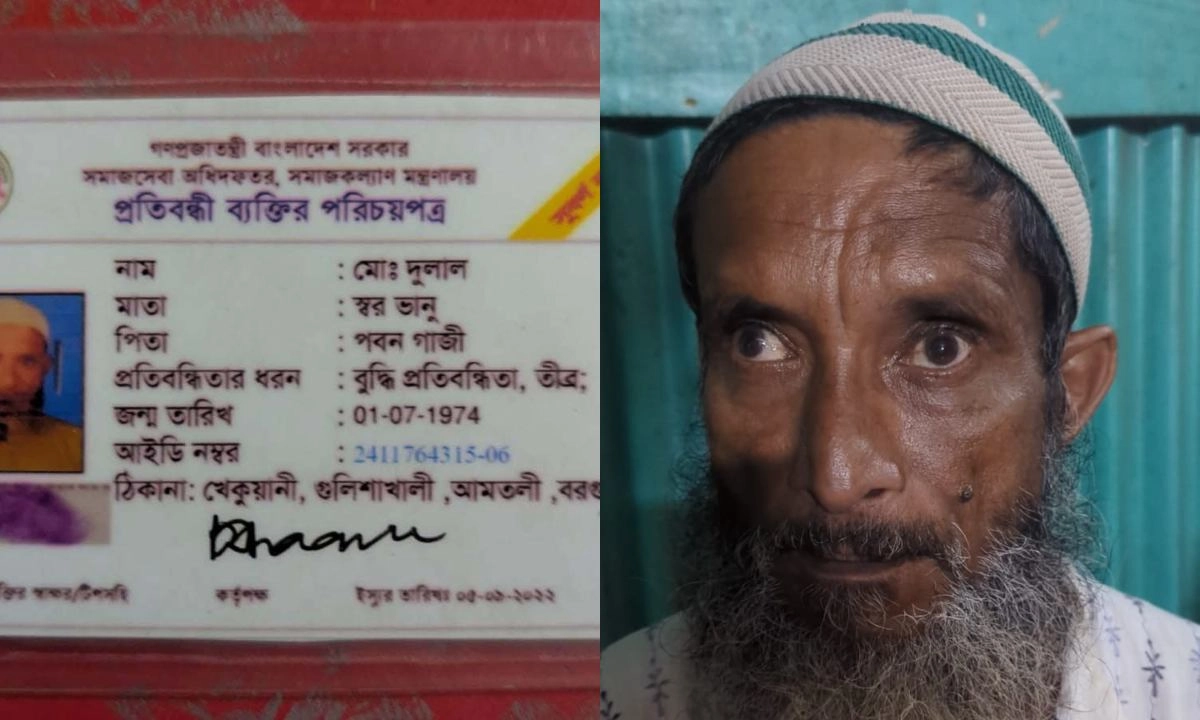 গণপ্রজাতন্ত্রী বাংলাদেশ সরকার
সমাজসেবা অধিদফতর, সমাজকল্যাণ মন্ত্রণালয়
প্রতিবন্ধী ব্যক্তির পরিচয়পত্র
নাম : মোঃ দুলাল
মাতা : স্বর ভানু
পিতা : পবন গাজী
প্রতিবন্ধিতার ধরন : বুদ্ধি প্রতিবন্ধিতা, তীব্র;
জন্ম তারিখ : 01-07-1974
আইডি নম্বর : 2411764315-06
ঠিকানা: খেকুয়ানী, গুলিশাখালী ,আমতলী ,বরগু
স্বাক্ষর/টিপসহি কর্তৃপক্ষ ইস্যুর তারিখঃ